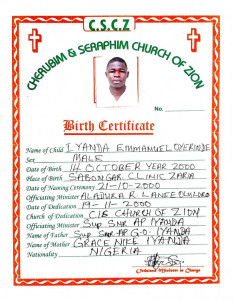 C.S.C.Z
CHERUBIM & SERAPHIM CHURCH OF ZION
No.
Birth Certificate
Name of Child IYANDA EMMANUEL OYERINDE
Sex MALE
Date of Birth 14 OCTOBER YEAR 2000
Place of Birth SABONGARI CLINIC ZARIA
Date of Naming Ceremony 21-10-2000
Officiating Minister ALADURA R. LANEE
Date of Dedication 19-11-2000
Church of Dedication C&S CHURCH OF ZION
Officiating Minister SUP SNR AP IYANDA
Name of Father SUP SNR AP G.O. IYANDA
Name of Mother GRACE NIKE IYANDA
Nationality NIGERIA
Ordained Minister in Charge